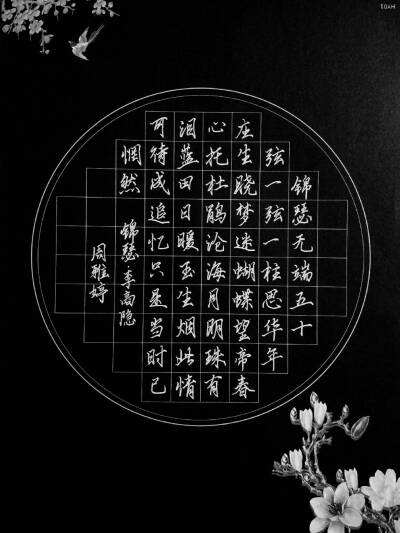 锦瑟无端五十
弦一弦一柱思华年
庄生晓梦迷蝴蝶望帝春
心托杜鹃沧海月明珠有
泪蓝田日暖玉生烟此情
可待成追忆只是当时已
惘然
锦瑟·李商隐
周雅婷